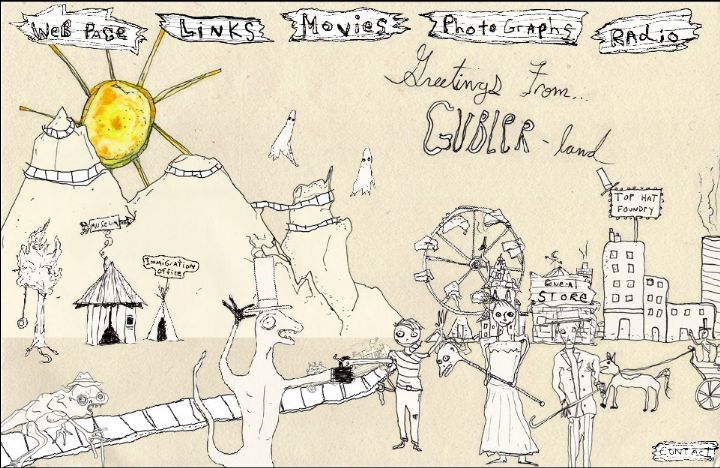 WeB PaGe
LiNKS
MoVies
PhotoGraphs
RADio
Greetings From...
GUBLER-land
TOP HAT
FOUNDRY
MUSEUM
IMMiGRATiON
OFFiCE
STORE
CONTACT